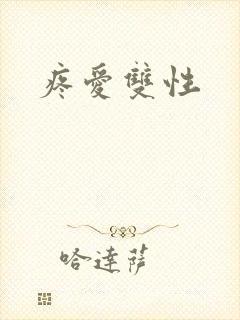 疼愛雙性
哈達薩